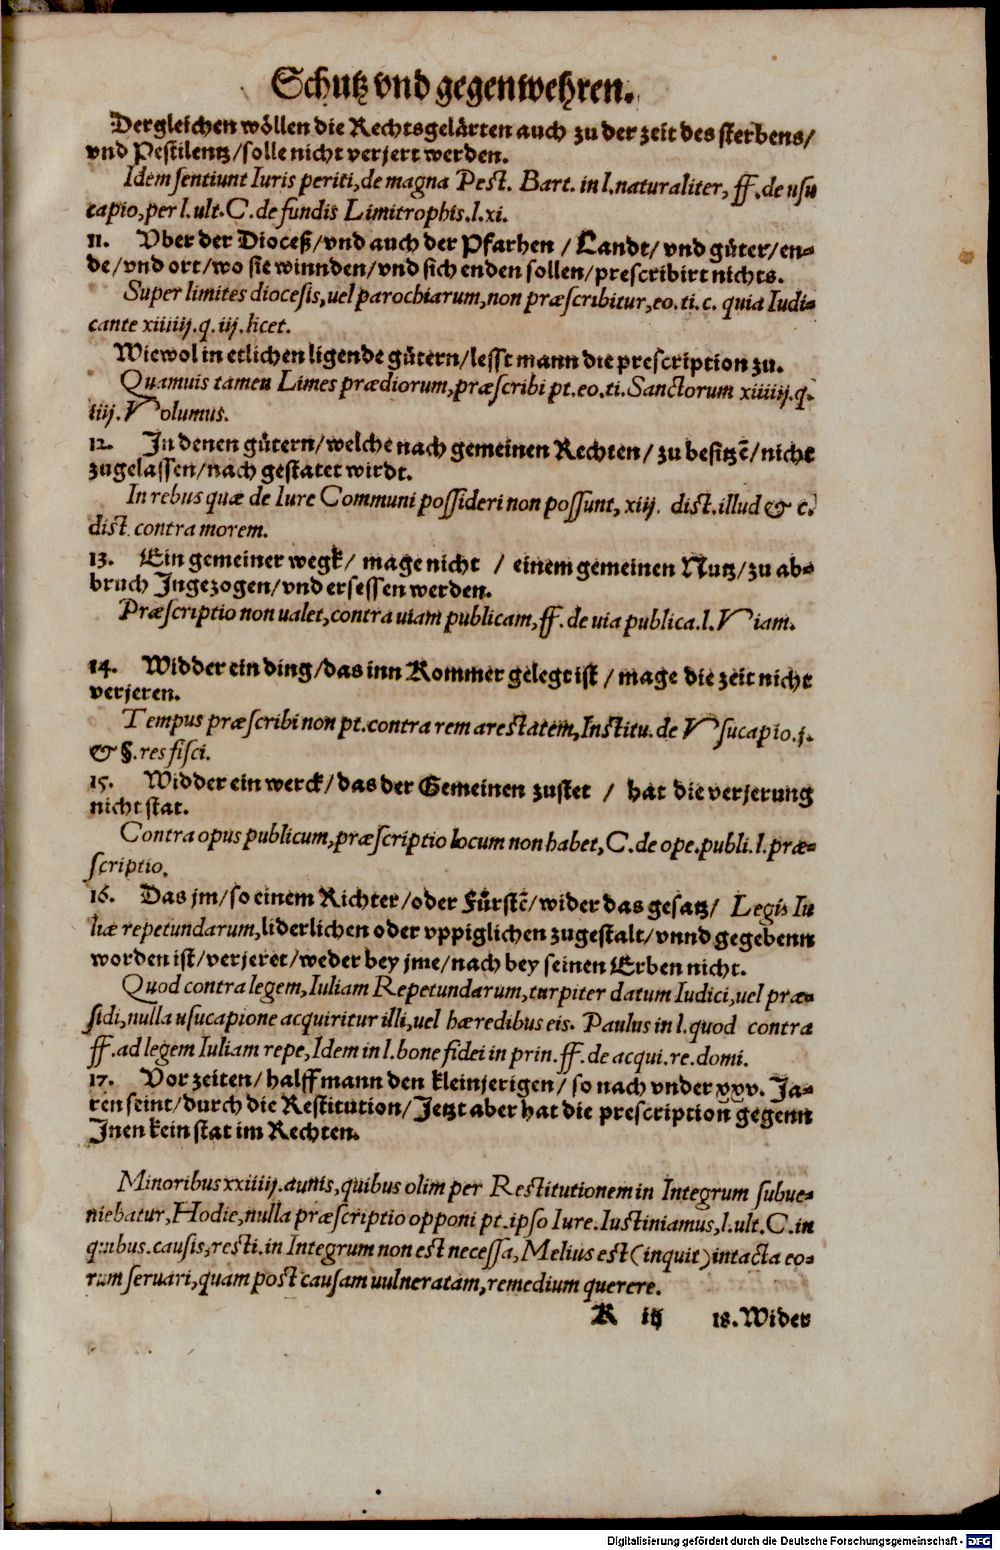 Schutz vnd gegenwehren.
Dergleichen wöllen die Rechtsgelärten auch zu der zeit des sterbens/
vnd Pestilentz/solle nicht verjert werden.
Idem sentiunt Iuris periti, de magna Pest. Bart. in l. naturaliter, ff. de usu
capio, per l. ult. C. de fundis Limitrophis. l. xi.
11. Vber der Diocesß/vnd auch der Pfarhen / Landt/ vnd güter/en-
de/vnd ort/wo sie winnden/vnd sich enden sollen/prescribirt nichts.
Super limites diocesis, uel parochiarum, non præscribitur, eo. ti. c. quia Iudi-
cante xiiiij. q. iij. licet.
Wiewol in etlichen ligende gütern/lesst mann die prescription zu.
Quamuis tamen Limes prædiorum, præscribi pt. eo. ti. Sanctorum xiiiiij. q.
iiij. Volumus.
12. In denen gütern/welche nach gemeinen Rechten / zu besitzē/nicht
zugelassen/nach gestatet wirdt.
In rebus quæ de Iure Communi possideri non possunt, xiij. dist. illud & c.
dist. contra morem.
13. Ein gemeiner wegk/ mage nicht / einem gemeinen Nutz/zu ab-
bruch Ingezogen/vnd ersessen werden.
Præscriptio non ualet, contra uiam publicam, ff. de uia publica. l. Viam.
14. Widder ein ding/das inn Kommer gelegt ist / mage die zeit nicht
verjeren.
Tempus præscribi non pt. contra rem arestatem, Institu. de Vsucapio. j.
& §. res fisci.
15. Widder ein werck/das der Gemeinen zustet / hat die verjerung
nicht stat.
Contra opus publicum, præscriptio locum non habet, C. de ope. publi. l. præ-
scriptio.
16. Das jm/so einem Richter/oder Fürstē/wider das gesatz/ Legis Iu
liæ repetundarum, liderlichen oder vppiglichen zugestalt/vnnd gegebenn
worden ist/verjeret/weder bey jme/nach bey seinen Erben nicht.
Quod contra legem, Iuliam Repetundarum, turpiter datum Iudici, uel præ-
sidi, nulla usucapione acquiritur illi, uel hæredibus eis. Paulus in l. quod contra
ff. ad legem Iuliam repe, Idem in l. bone fidei in prin. ff. de acqui. re. domi.
17. Vor zeiten/ halff mann den kleinjerigen/ so nach vnder xxv. Ja-
ren seint/durch die Restitution/Jetzt aber hat die prescription gegenn
Inen kein stat im Rechten.
Minoribus xxiiiij. annis, quibus olim per Restitutionem in Integrum subue-
niebatur, Hodie, nulla præscriptio opponi pt. ipso Iure. Iustiniamus, l. ult. C. in
quibus. causis, resti. in Integrum non est necessa, Melius est (inquit) intacta eo-
rum seruari, quam post causam uulneratam, remedium querere.
K iij 18. Wider
Digitalisierung gefördert durch die Deutsche Forschungsgemeinschaft - DFG